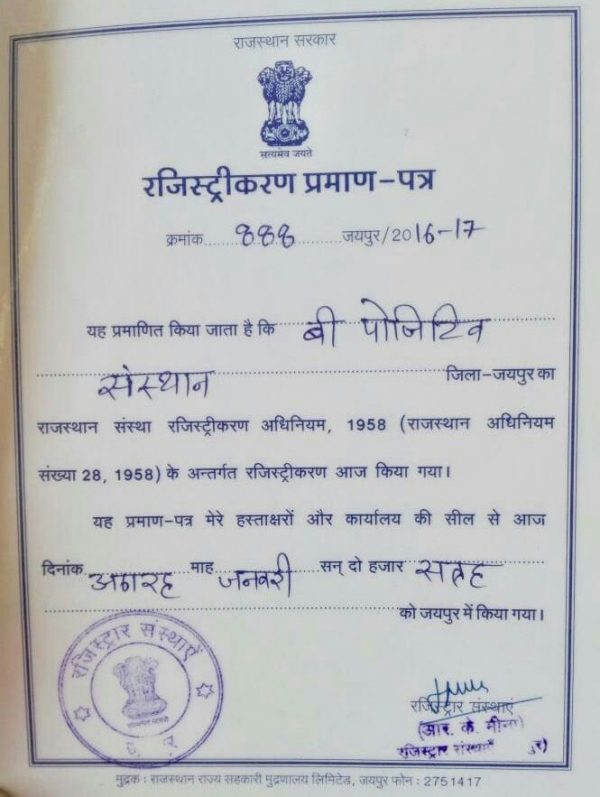 राजस्थान सरकार
सत्यमेव जयते
रजिस्ट्रीकरण प्रमाण-पत्र
क्रमांक 888 जयपुर/2016-17
यह प्रमाणित किया जाता है कि बी पोजिटिव
संस्थान जिला-जयपुर का
राजस्थान संस्था रजिस्ट्रीकरण अधिनियम, 1958 (राजस्थान अधिनियम
संख्या 28, 1958) के अन्तर्गत रजिस्ट्रीकरण आज किया गया।
यह प्रमाण-पत्र मेरे हस्ताक्षरों और कार्यालय की सील से आज
दिनांक अठारह माह जनवरी सन् दो हजार सत्रह
को जयपुर में किया गया।
रजिस्ट्रार संस्थाएँ
रजिस्ट्रार संस्थाएं
(आर. के. मीना)
रजिस्ट्रार संस्थाएँ
मुद्रक : राजस्थान राज्य सहकारी मुद्रणालय लिमिटेड, जयपुर फोन : 2751417